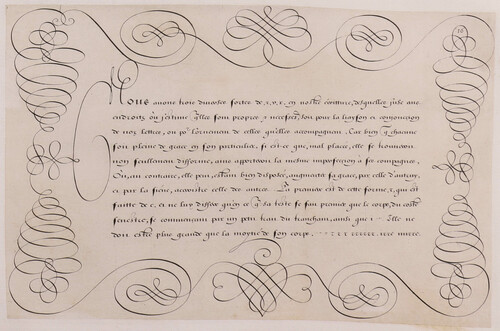 16
Nous avons trois diverses sortes de, r, v, x, en nostre escriture, desquelles j'use aux
endroitz ou j'estime qu'elles sont propres, & necessaires, soit pour la liayson & conionction
de nos lettres, ou pour l'ornement de celles qu'elles accompagnent. Car bien que chacune
soit pleine de grace en son particulier, si est-ce que, mal placée, elle se trouvera
non seullement difforme, ains apportera la mesme imperfection à sa compagne,
Ou, au contraire, elle peut, estant bien disposée, augmenter sa grace, par celle d'autruy,
et par la sienne, accroistre celle des autres. La premiere est de cette forme, r, qui est
faitte de c, et i, ne luy differe qu'en ce que sa teste se fait premier que le corps, du costé
senestre, se commençant par un petit traict du tranchant, ainsi que ı Elle ne
doit estre plus grande que la moytié de son corps,